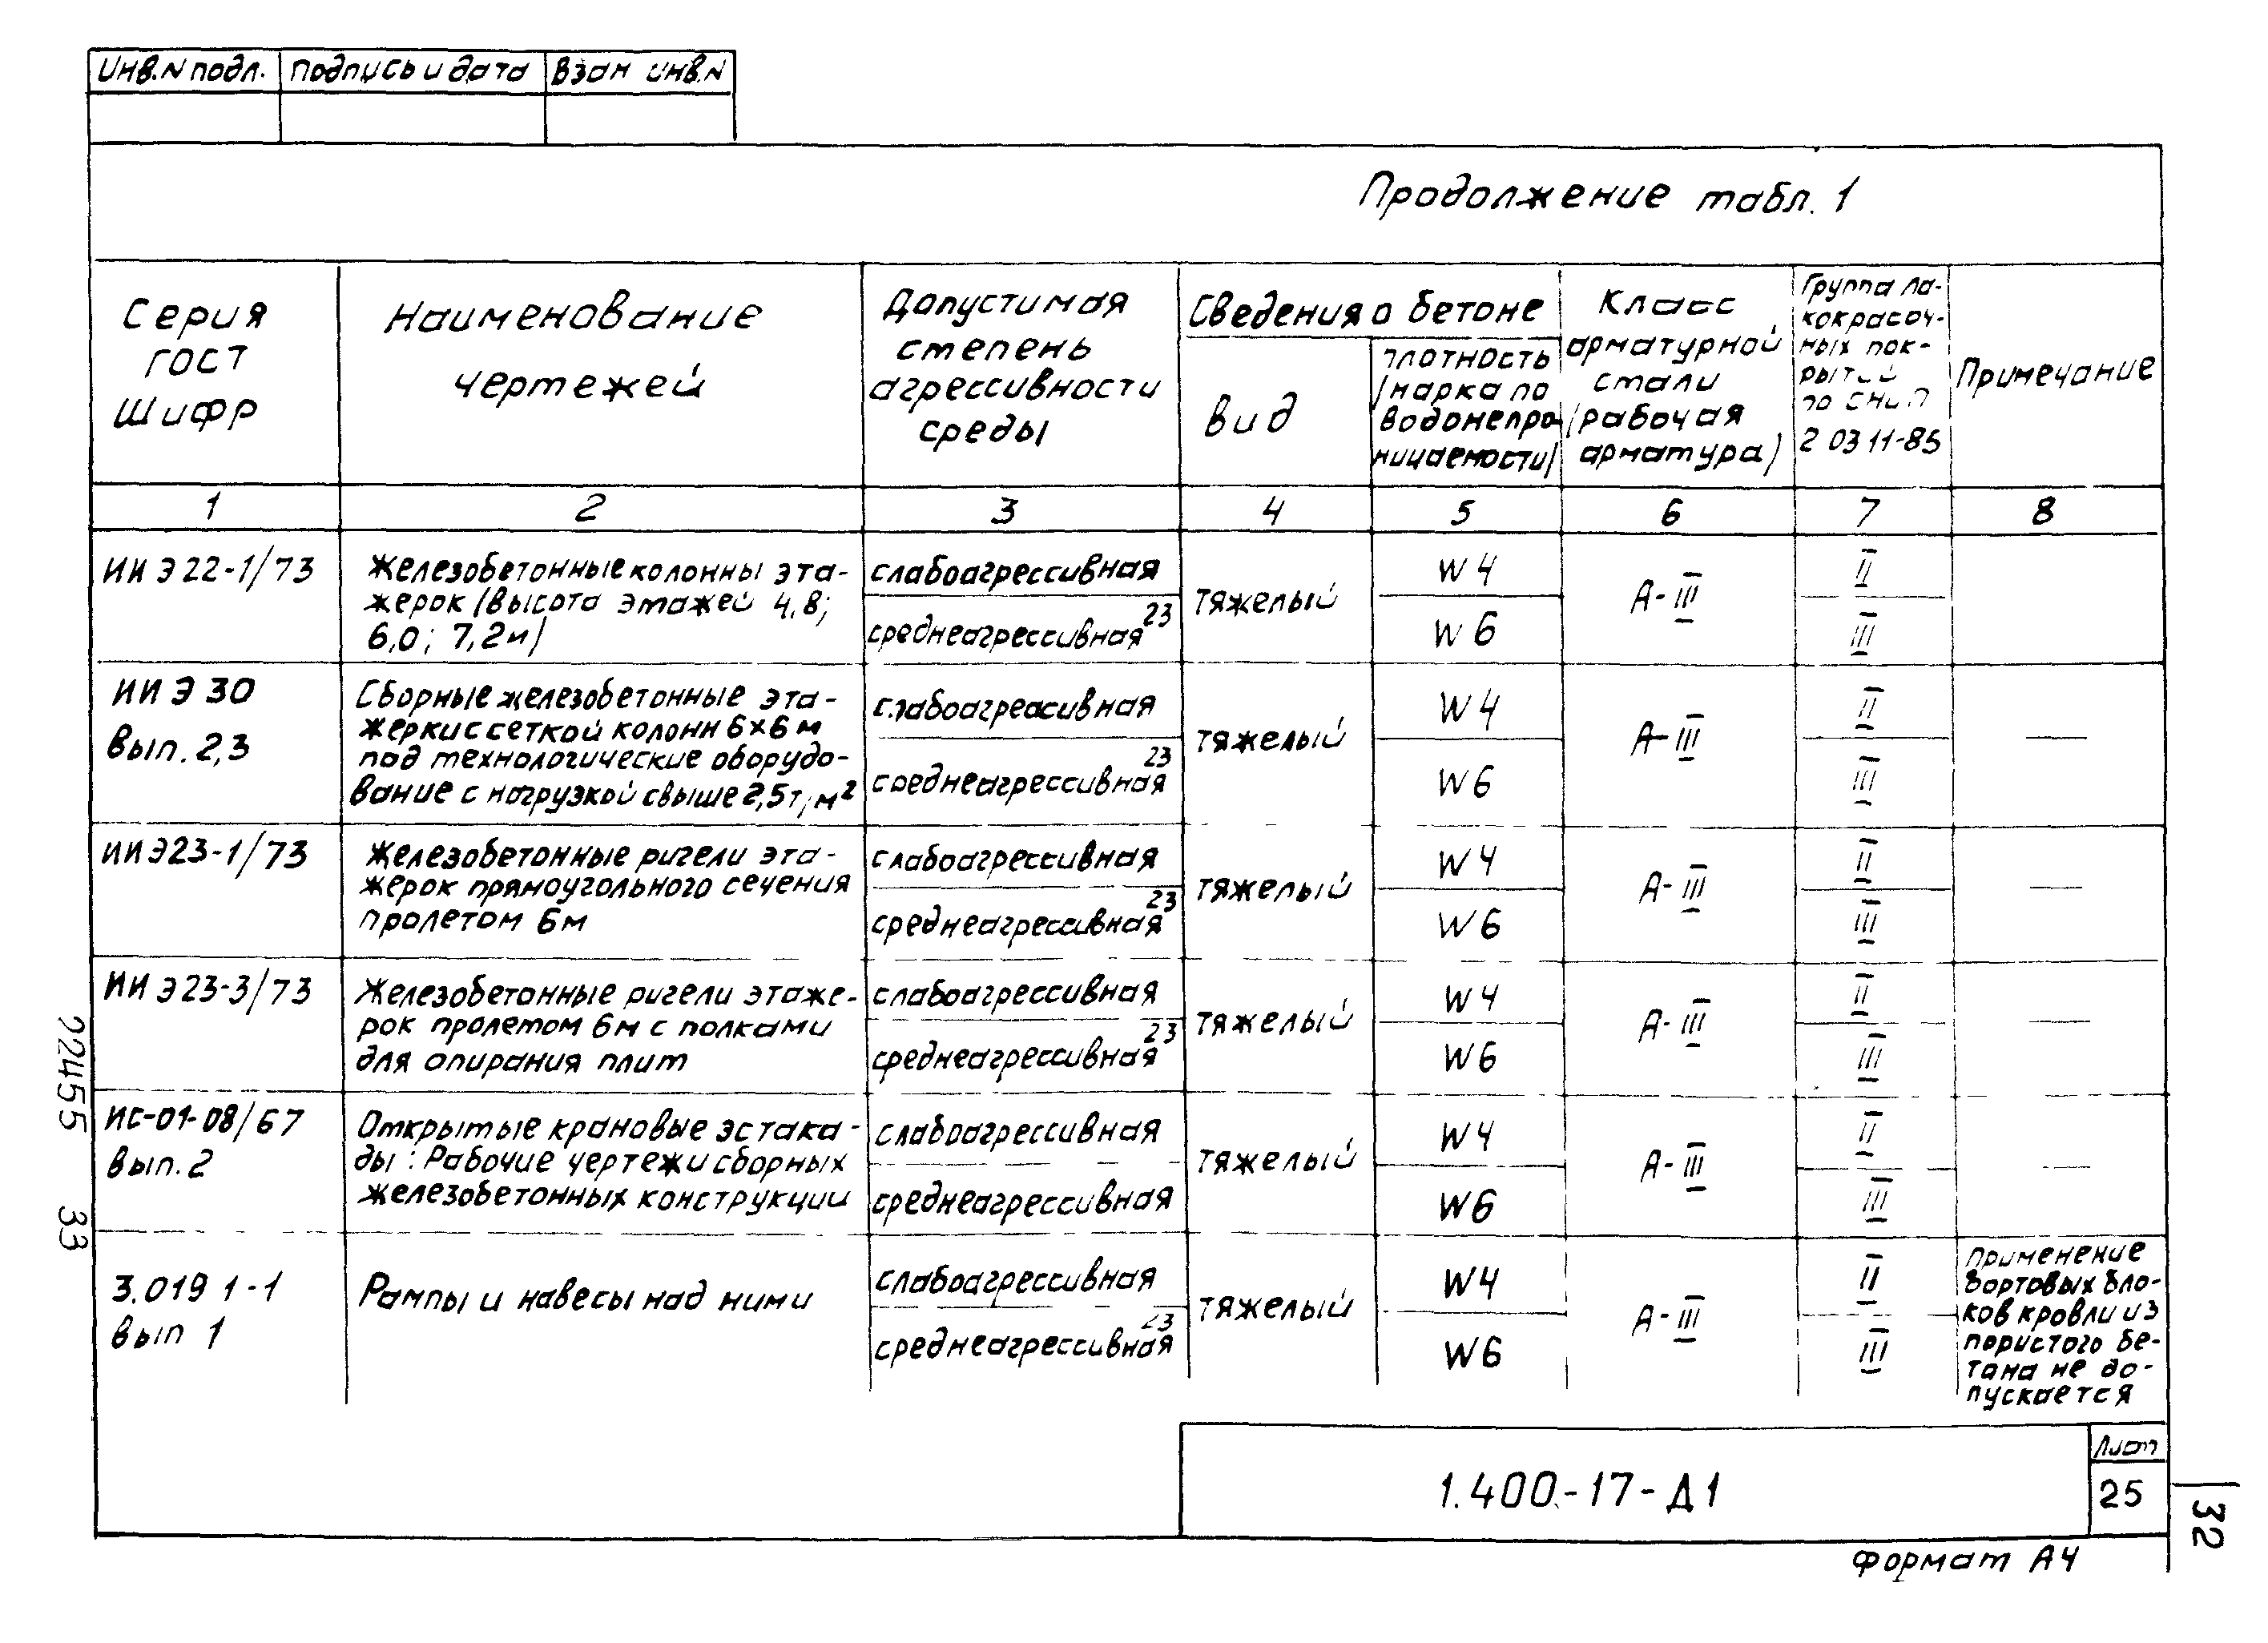 Инв.N подл. Подпись и дата Взам инв.N
Продолжение табл. 1
Серия
ГОСТ
Шифр
Наименование
чертежей
Допустимая
степень
агрессивности
среды
Сведения о бетоне
вид
плотность
(марка по
водонепро-
ницаемости)
Класс
арматурной
стали
(рабочая
арматура)
Группа ла-
кокрасоч-
ных пок-
рытий
по СНиП
2 03 11-85
Примечание
1 2 3 4 5 6 7 8
ИИ Э 22-1/73
Железобетонные колонны эта-
жерок (высота этажей 4,8;
6,0; 7,2м)
слабоагрессивная
среднеагрессивная 23
тяжелый
W4
W6
А-III
II
III
ИИ Э 30
Вып. 2,3
Сборные железобетонные эта-
жерки с сеткой колонн 6×6 м
под технологические оборудо-
вание с нагрузкой свыше 2,5т/м²
слабоагрессивная
среднеагрессивная 23
тяжелый
W4
W6
А-III
II
III
—
ИИ Э23-1/73
Железобетонные ригели эта-
жерок прямоугольного сечения
пролетом 6м
слабоагрессивная
среднеагрессивная 23
тяжелый
W4
W6
А-III
II
III
—
ИИ Э23-3/73
Железобетонные ригели этаже-
рок пролетом 6м с полками
для опирания плит
слабоагрессивная
среднеагрессивная 23
тяжелый
W4
W6
А-III
II
III
—
ИС-01-08/67
Вып. 2
Открытые крановые эстака-
ды: Рабочие чертежи сборных
железобетонных конструкции
слабоагрессивная
среднеагрессивная
тяжелый
W4
W6
А-III
II
III
—
3.019 1-1
Вып 1
Рампы и навесы над ними
слабоагрессивная
среднеагрессивная 23
тяжелый
W4
W6
А-III
II
III
Применение
бортовых бло-
ков кровли из
пористого бе-
тона не до-
пускается
1.400.-17-Д1
Лист
25
Формат А4
22455 33
32